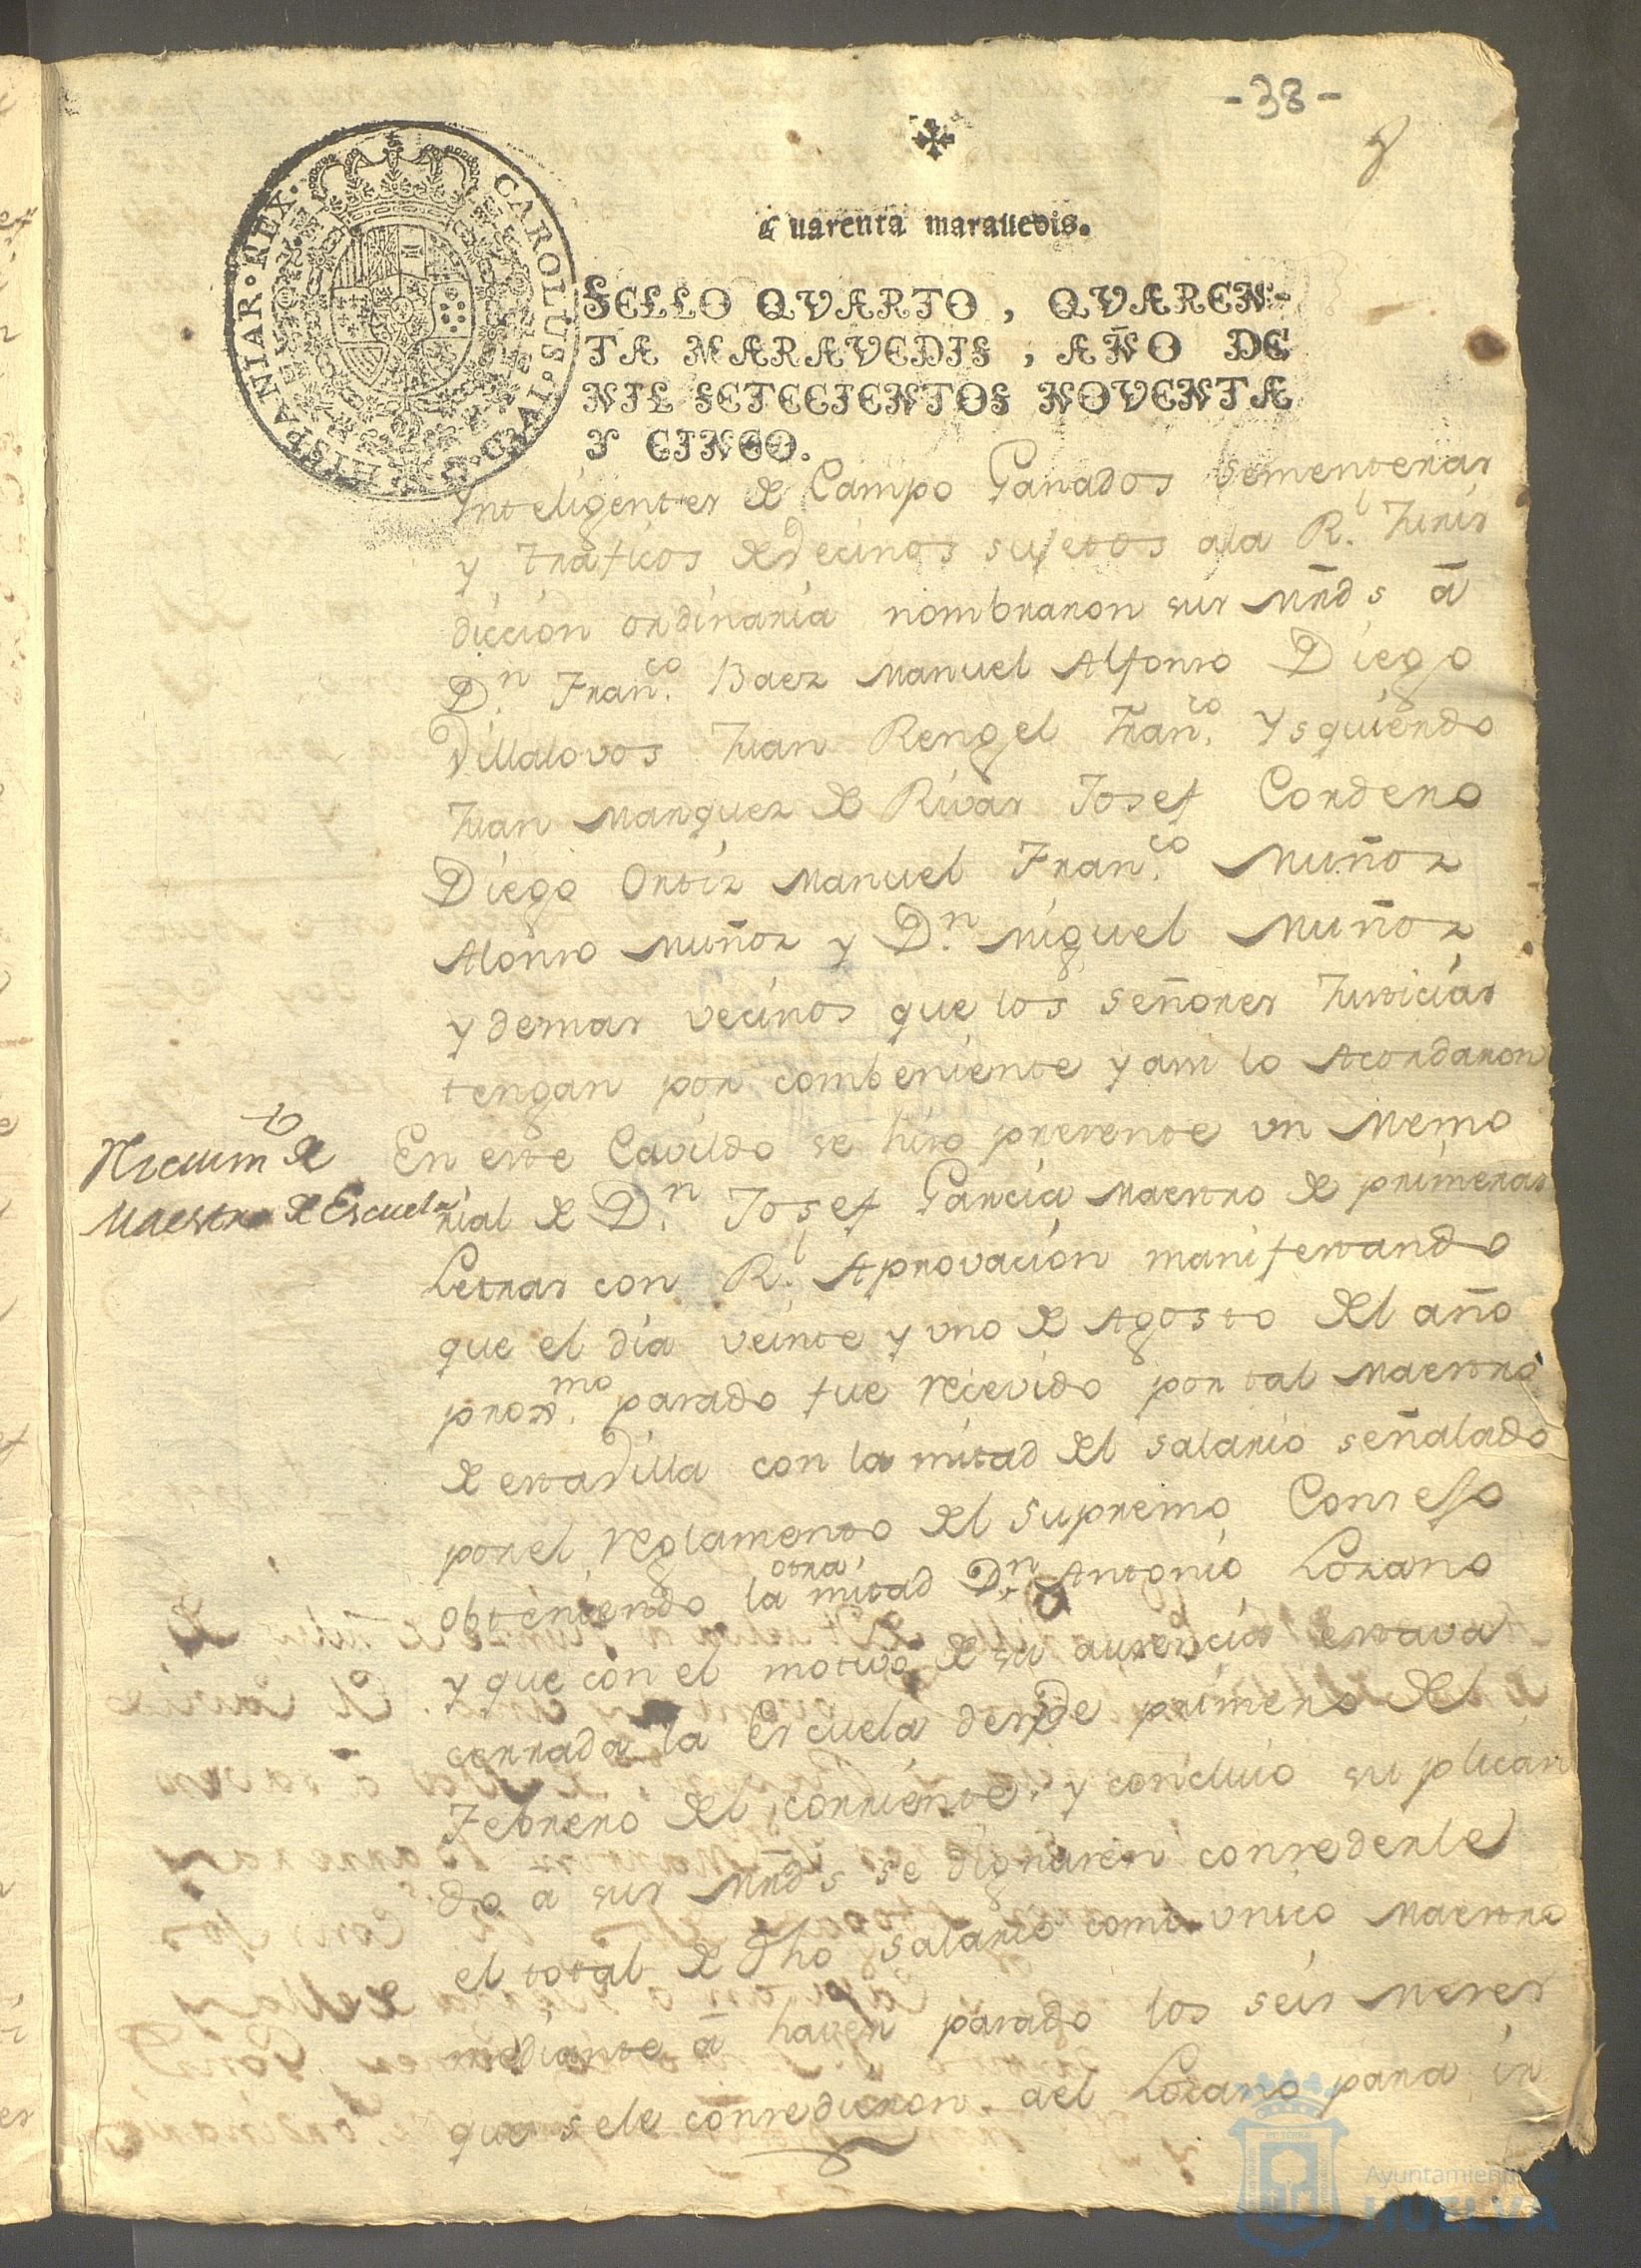 -38-
Quarenta maravedis.
SELLO QVARTO, QVAREN-
TA MARAVEDIS, AÑO DE
MIL SETECIENTOS NOVENTA
Y CINCO.
CAROLUS·IV·D·G· HISPANIAR·REX·
Inteligentes de Campo Ganados sementeras
y traficos de Vecinos sujetos a la R.l Juris
diccion ordinaria nombraron sus Mrds â
D.n Fran.co Baez Manuel Alfonso Diego
Villalovos Juan Rengel Fran.co Ysquierdo
Juan Marquez de Rivas Josef Cordero
Diego Ortiz Manuel Fran.co Muñoz
Alonso Muñoz y D.n Miguel Muñoz
y demas vecinos que los señores Justicias
tengan por combeniente y assi lo Acordaron
En este Cavildo se hiso presente un Memo
rial de D.n Josef Garcia Maestro de primeras
Letras con R.l Aprovacion manifestando
que el dia veinte y uno de Agosto del año
prox.mo pasado fue recevido por tal Maestro
de esta Villa con la mitad del salario señalado
por el reglamento del Supremo Consejo
obteniendo la otra mitad D.n Antonio Lozano
y que con el motivo de su ausencia estava
cerrada la Escuela desde primero del
Febrero del corriente y concluio suplican
do a sus Mrds se dignasen consederle
el total de dho salario como unico Maestro
mediante â haver pasado los seis meses
que sele consedieron ael Lozano para ir
Maestro de Escuela
Ayuntamiento de
HUELVA